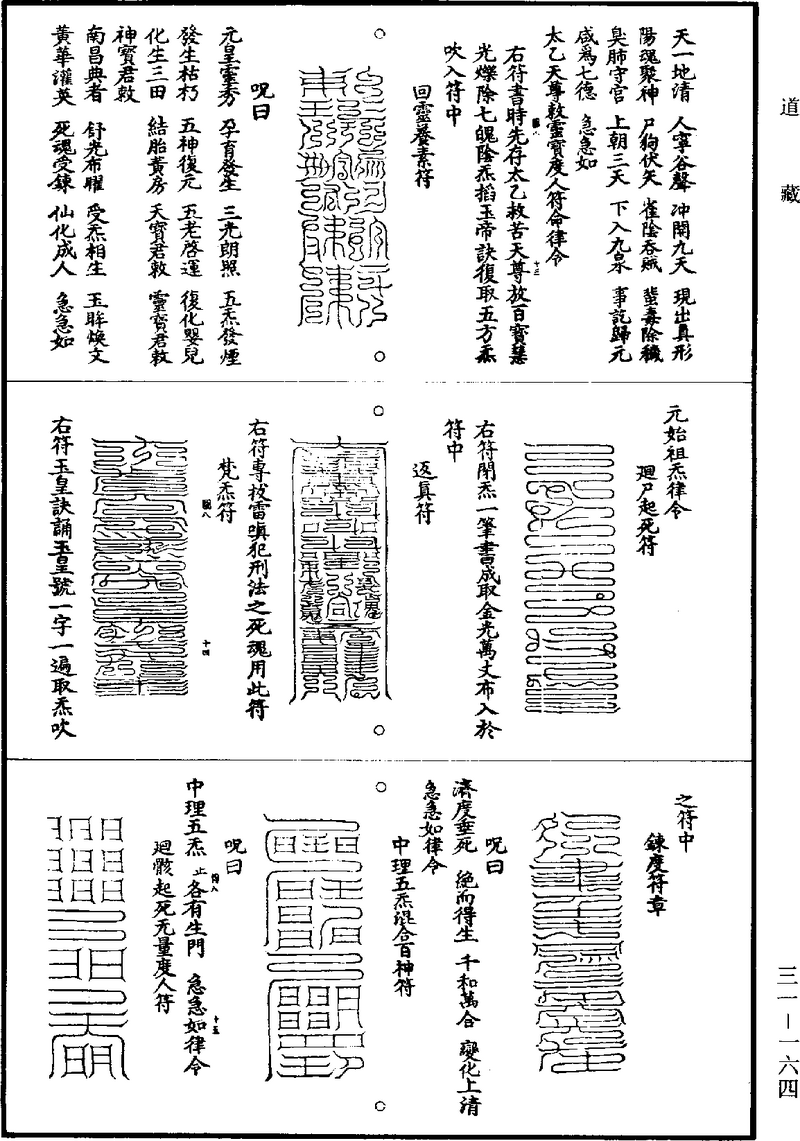 道藏
天一地清 人寧谷聲 冲開九天 現出真形
陽魂聚神 尸狗伏矢 雀陰吞賊 蜚毒除穢
臭肺守宮 上朝三天 下入九泉 事訖歸元
成爲七德 急急如
太乙天尊敕靈寶度人符命律令
右符書時先存太乙救苦天尊放百寶慧
光爍除七魄陰炁掐玉帝訣復取五方炁
吹入符中
回靈養素符
呪曰
元皇靈秀 孕育發生 三光朗照 五炁發煙
發生枯朽 五神復元 五老啓運 復化嬰兒
化生三田 結胎黃房 天寶君敕 靈寶君敕
神寶君敕
南昌典者 舒光布曜 受炁相生 玉眸煥文
黃華灌英 死魂受鍊 仙化成人 急急如
元始祖炁律令
廻尸起死符
右符閉炁一筆書成取金光萬丈布入於
符中
返真符
右符專拔雷嗔犯刑法之死魂用此符
梵炁符
四八
十四
右符玉皇訣誦玉皇號一字一遍取炁吹
之符中
鍊度符章
呪曰
濟度垂死 絶而得生 千和萬合 變化上清
急急如律令
中理五炁混合百神符
呪曰
中理五炁 止各有生門 急急如律令
四八
十五
廻骸起死无量度人符
三一—一六四